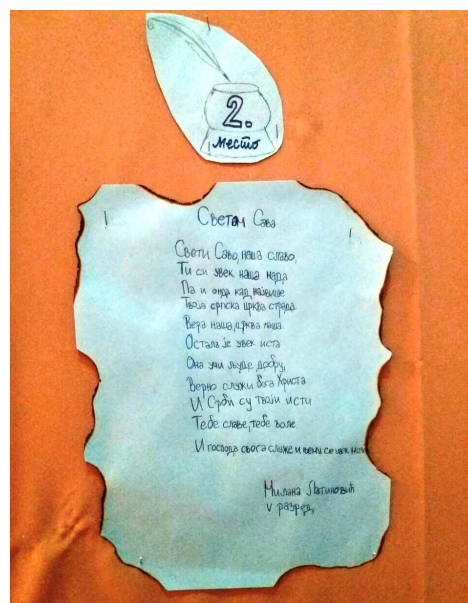 2.
место
Светом Сава
Свети Саво, наша славо,
Ти си увек наша нада
Па и онда кад највише
Твоја српска црква страда.
Вера наша, црква наша
Остала је увек иста
Она учи људе добру,
Верно служи бога Христа
И Срби су твоји исти
Тебе славе, тебе воле
И господа свога служе и њему се увек моле
Милана
V разред